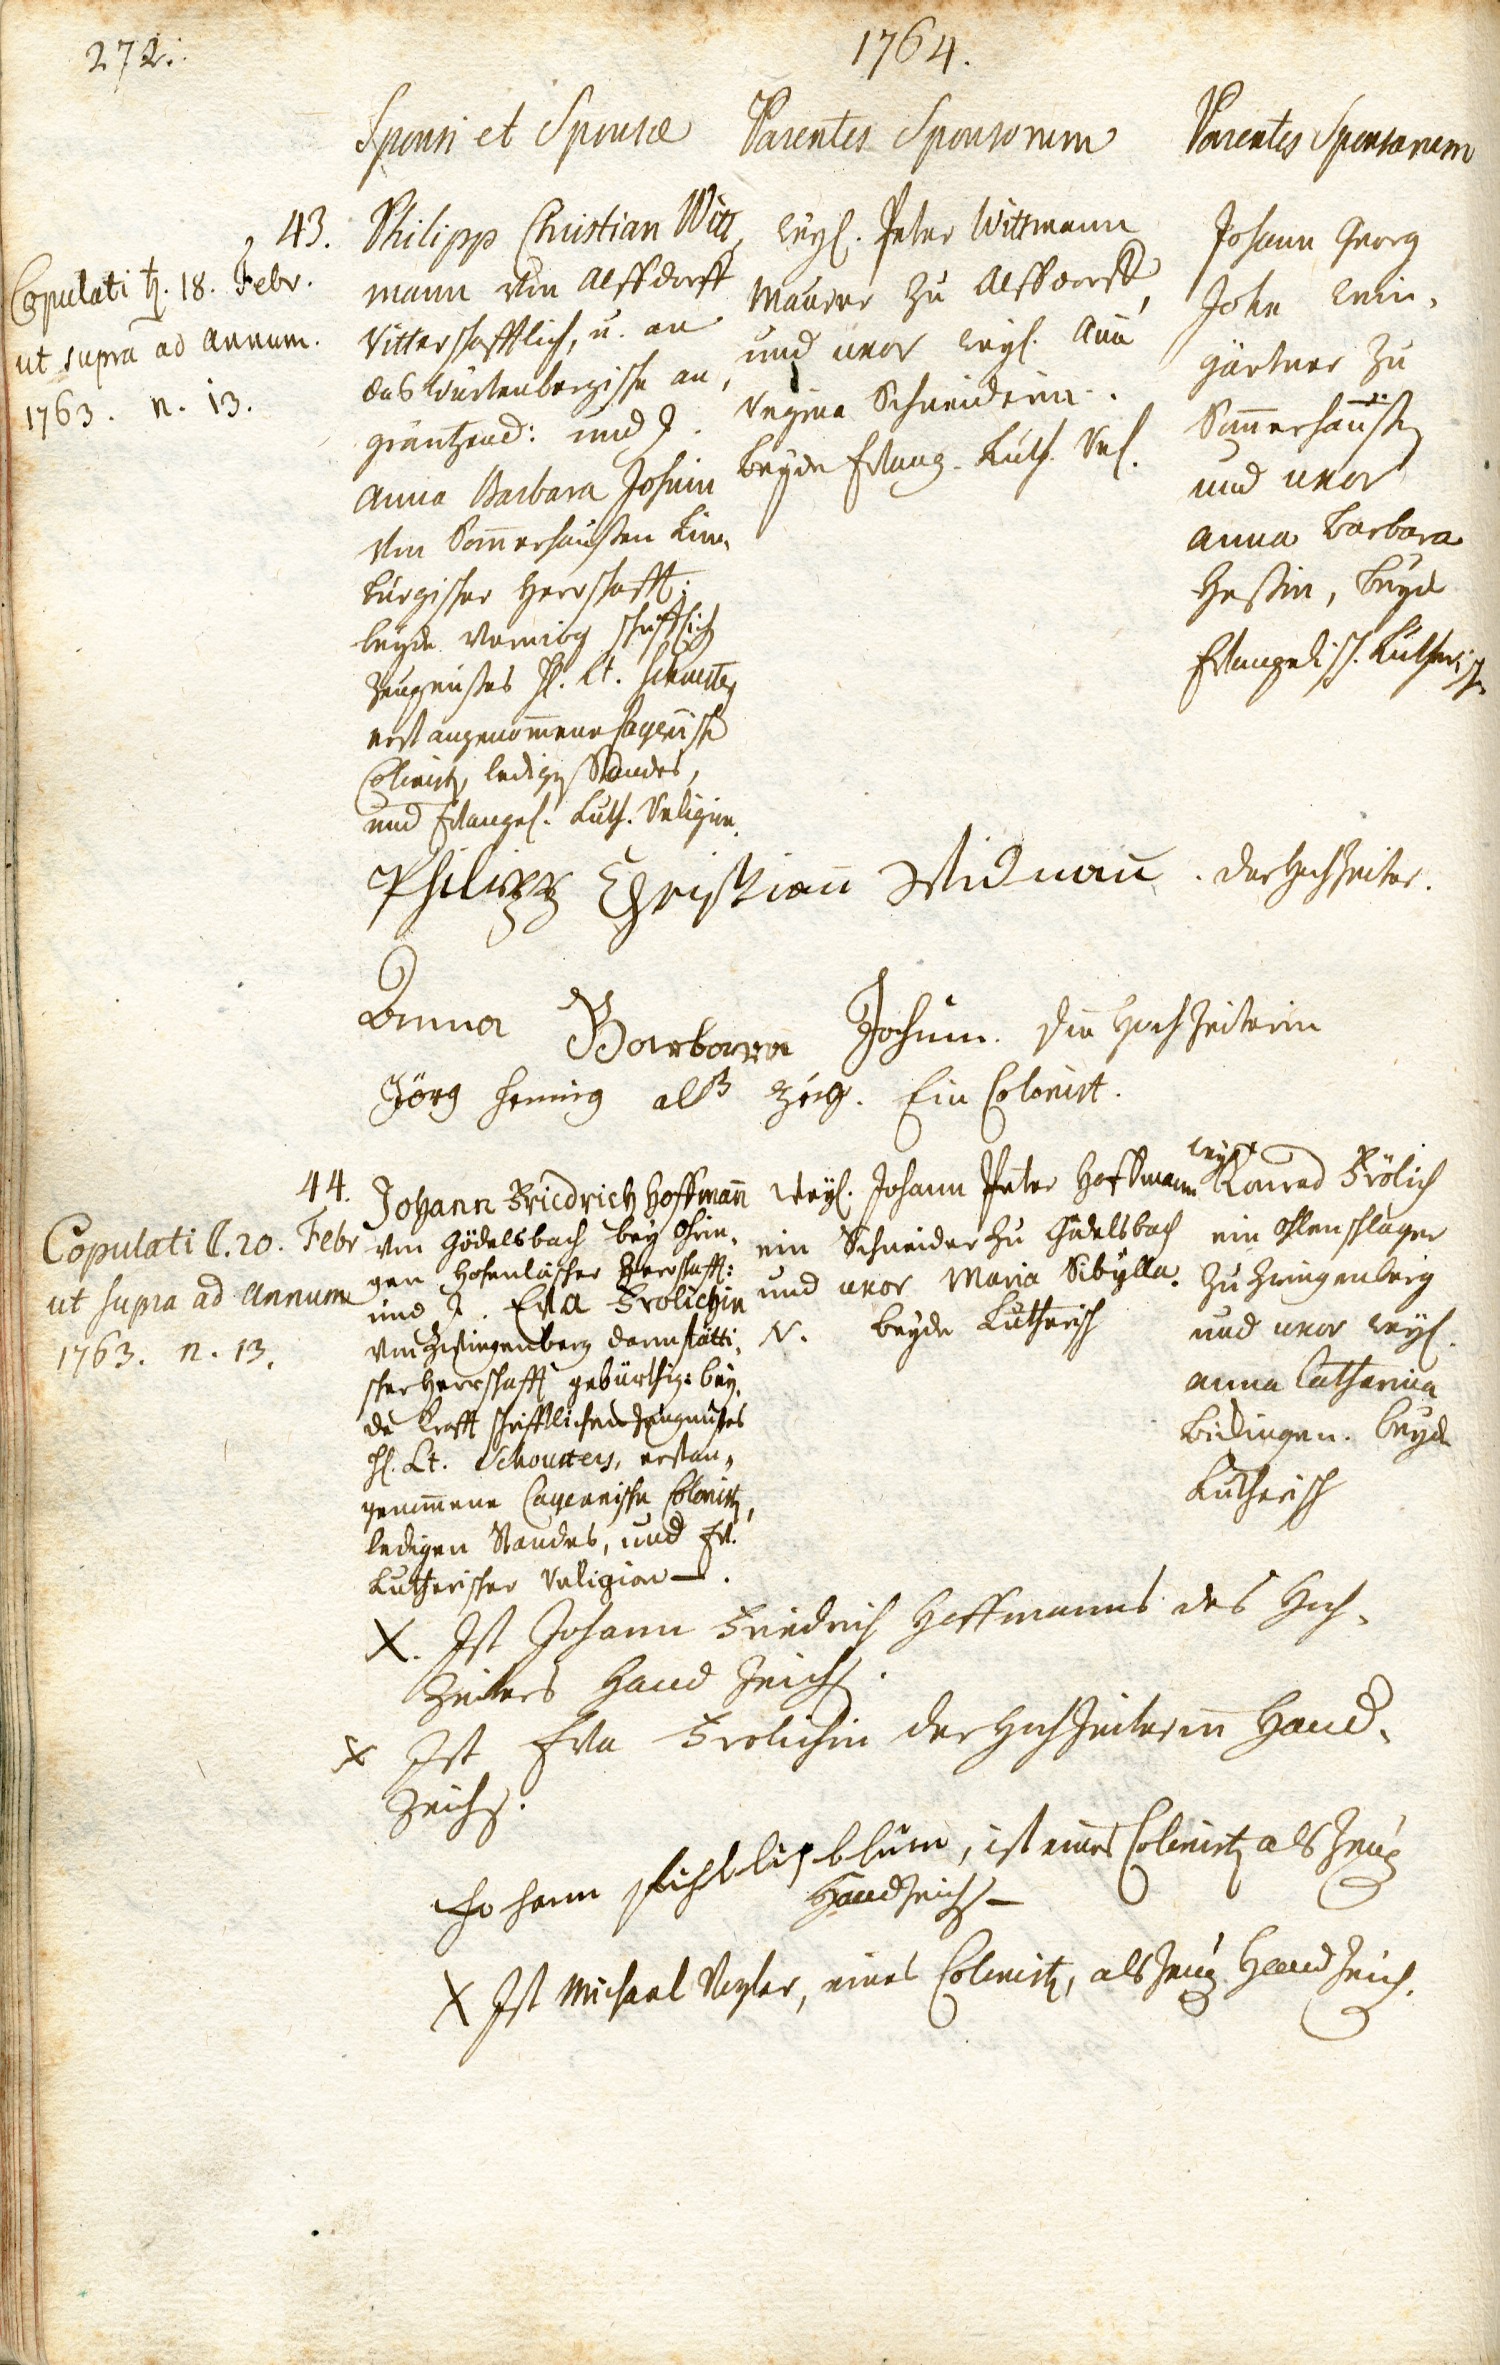 272.
1764.
Sponsi et Sponsæ
Parentes Sponsorum
Parentes Sponsarum
43.
Copulati ♄. 18. Febr.
ut supra ad annum.
1763. n. 13.
Philipp Christian Witt,
mann von Alffdorff
Ritterschafftlich, u. an
das Würtenbergische an,
gräntzend: und J.
Anna Barbara Johein
von Som̅erhaußen Lim,
burgischer Herrschafft:
beyde vermög schrifftlich
Zeugnußes H. Lt. Schouster
erst angenom̅ene hayenische
Colonist, ledigen Standes,
und Evangel. Luth. Religion.
weyl. Peter Wittmann
Maurer zu Alffdorff,
und uxor weyl. Anna
Regina Schneiderin.
beyde Evang. Luth. Rel.
Johann Georg
Johe wein,
gärtner zu
Som̅erhaußen
und uxor
Anna Barbara
Heßin, beyde
Evangelisch. Lutherisch
Philipp Christian Widman̅. der Hochzeiter.
Anna Barbara Johin. die Hochzeiterin
Jörg Hennig alß zeig. Ein Colonist.
44.
Copulati ☾. 20. Febr
ut supra ad annum
1763. n. 13.
Johann Friedrich Hoffman̅
von Gödelsbach bey Ohrin,
gen Hohenloischer Herrschafft:
und J. Eva Frolichin
von Zwingenberg darmstätti,
scher Herrschafft gebürthig: bey,
de krafft schrifftlichen Zeugnußes
H. Lt. Schousters, erst an,
genom̅ene Cayennische Colonist,
ledigen Standes, und Ev.
Lutherischer Religion.
weyl. Johann Peter Hoffmann
ein Schneider zu Gädelsbach
und uxor Maria Sibylla
N. beyde Lutherisch
weyl.
Konrad Frölich
ein Ohlenschlager
zu Zwingenberg
und uxor weyl.
Anna Catharina
Bidingen. beyde
Lutherisch
X. Ist Johann Friedrich Hoffmanns des Hoch,
zeiters Hand Zeichen.
X Ist Eva Frolichin der Hochzeiterin̅ Hand,
Zeichen.
Johann, ist eines Colonist als Zeug
Handzeichen
X Ist Michael, eines Colonist, als Zeug Hand Zeich.